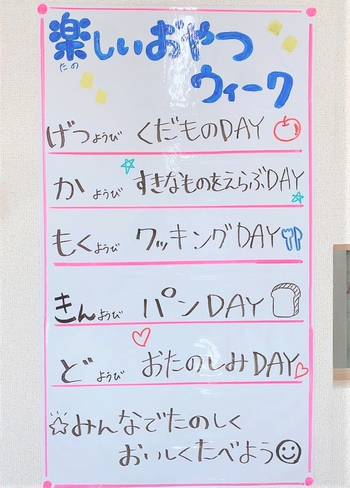 楽しいおやつ
たの
ウィーク
げつようび くだものDAY
かようび すきなものをえらぶDAY
もくようび クッキングDAY
きんようび パンDAY
どようび おたのしみDAY
みんなでたのしく
おいしくたべよう